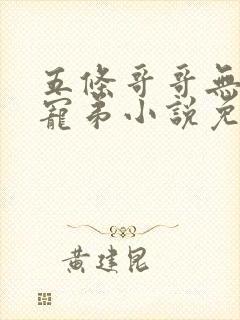 五條哥哥無
寵弟小說免
黃建昆